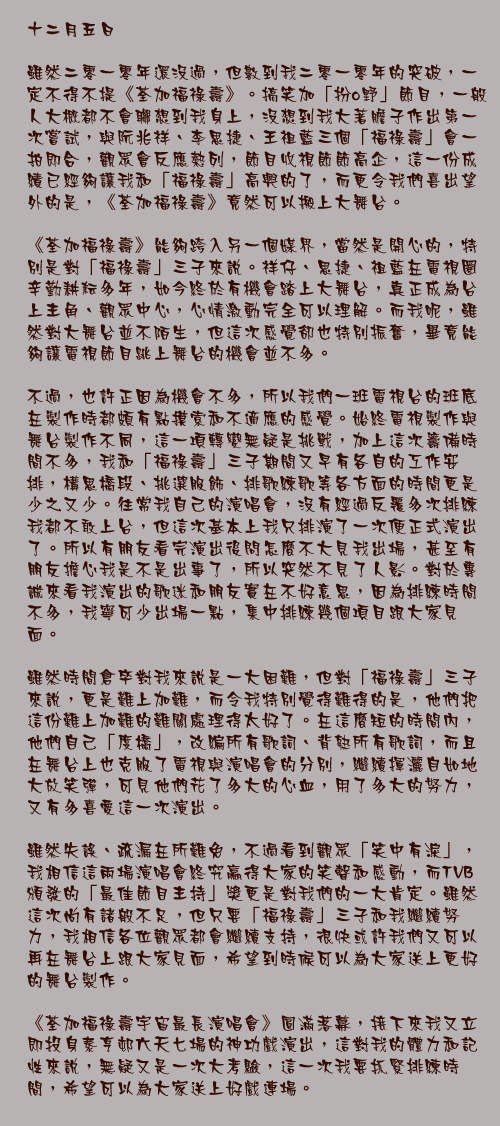 十二月五日
雖然二零一零年還沒過，但數到我二零一零年的突破，一
定不得不提《荃加福祿壽》。搞笑加「扮o野」節目，一般
人大概都不會聯想到我身上，沒想到我大著膽子作出第一
次嘗試，與阮兆祥、李思捷、王祖藍三個「福祿壽」會一
拍即合，觀眾會反應熱烈，節目收視節節高企，這一份成
績已經夠讓我和「福祿壽」高興的了，而更令我們喜出望
外的是，《荃加福祿壽》竟然可以搬上大舞台。
《荃加福祿壽》能夠跨入另一個媒界，當然是開心的，特
別是對「福祿壽」三子來說。祥仔、思捷、祖藍在電視圈
辛勤耕耘多年，如今終於有機會踏上大舞台，真正成為台
上主角、觀眾中心，心情激動完全可以理解。而我呢，雖
然對大舞台並不陌生，但這次感覺卻也特別振奮，畢竟能
夠讓電視節目跳上舞台的機會並不多。
不過，也許正因為機會不多，所以我們一班電視台的班底
在製作時都頗有點摸索和不適應的感覺。始終電視製作與
舞台製作不同，這一項轉變無疑是挑戰，加上這次籌備時
間不多，我和「福祿壽」三子期間又早有各自的工作安
排，構思橋段、挑選服飾、排歌練歌等各方面的時間更是
少之又少。往常我自己的演唱會，沒有經過反覆多次排練
我都不敢上台，但這次基本上我只排演了一次便正式演出
了。所以有朋友看完演出後問怎麼不大見我出場，甚至有
朋友擔心我是不是出事了，所以突然不見了人影。對於專
誠來看我演出的歌迷和朋友實在不好意思，因為排練時間
不多，我寧可少出場一點，集中排練幾個項目跟大家見
面。
雖然時間倉卒對我來說是一大困難，但對「福祿壽」三子
來說，更是難上加難，而令我特別覺得難得的是，他們把
這份難上加難的難關處理得太好了。在這麼短的時間內，
他們自己「度橋」，改編所有歌詞、背熟所有歌詞，而且
在舞台上也克服了電視與演唱會的分別，繼續揮灑自如地
大放笑彈，可見他們花了多大的心血，用了多大的努力，
又有多喜愛這一次演出。
雖然失誤、疏漏在所難免，不過看到觀眾「笑中有淚」，
我相信這兩場演唱會終究贏得大家的笑聲和感動，而TVB
頒發的「最佳節目主持」獎更是對我們的一大肯定。雖然
這次怕有諸般不足，但只要「福祿壽」三子和我繼續努
力，我相信各位觀眾都會繼續支持，很快或許我們又可以
再在舞台上跟大家見面，希望到時候可以為大家送上更好
的舞台製作。
《荃加福祿壽宇宙最長演唱會》圓滿落幕，接下來我又立
即投身秦亨邨六天七場的神功戲演出，這對我的體力和記
性來說，無疑又是一次大考驗，這一次我要抓緊排練時
間，希望可以為大家送上好戲連場。